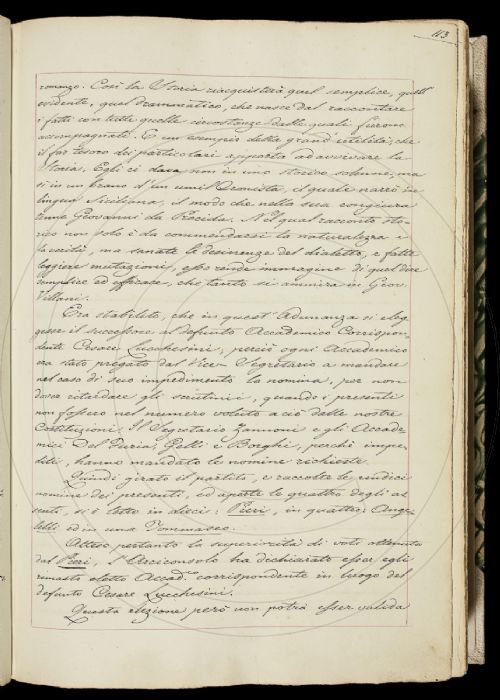 113
romanzo. Così la Storia riacquisterà quel semplice, quell'
evidente, quel drammatico, che nasce dal raccontare
i fatti con tutte quelle circostanze dalle quali furono
accompagnati. E un esempio della grand' utilità, che
il far tesoro dei particolari apporta ad avvivare la
Storia, Egli ci dava non in uno storico solenne, ma
sì in un brano d'un umil Cronista, il quale narrò in
lingua Siciliana, il modo che nella sua congiura
tenne Giovanni da Procida. Nel qual racconto sto-
rico non solo è da commendarsi la naturalezza e
la verità, ma sanate le desinenze del dialetto, e fatte
leggiere mutazioni, esso rende immagine di quel dire
semplice ed efficace, che tanto si ammira in Giov.
Villani.
Era stabilito, che in quest' Adunanza si eleg-
gesse il successore al defunto Accademico Corrispon-
dente Cesare Lucchesini, perciò ogni Accademico
era stato pregato dal Vice-Segretario a mandare
nel caso di suo impedimento la nomina, per non
dover ritardare gli scrutinii, quando i presenti
non fossero nel numero voluto a ciò dalle nostre
Costituzioni. Il Segretario Zannoni e gli Accade-
mici Del Furia, Gelli e Borghi, perchè impe-
diti, hanno mandato le nomine richieste.
Quindi girato il partito, e raccolte le undici
nomine dei presenti, ed aperte le quattro degli as-
senti, si è letto in dieci: Pieri, in quattro: Ange-
lelli ed in una Tommaseo.
Atteso pertanto la superiorità di voti ottenuta
dal Pieri, l'Arciconsolo ha dichiarato esser egli
rimasto eletto Accad.co corrispondente in luogo del
defunto Cesare Lucchesini.
Questa elezione però non potrà esser valida